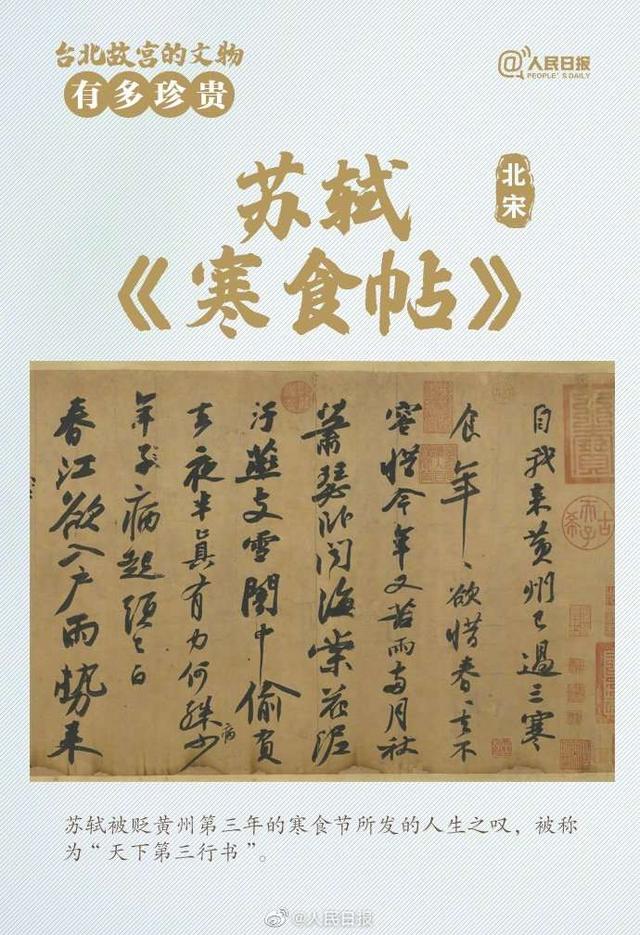 台北故宫的文物
有多珍贵
@人民日报
PEOPLE'S DAILY
北宋
苏轼
《寒食帖》
自我来黃州已過三寒
食年、欲惜春、去不
容惜今年又苦雨兩月秋
蕭瑟卧聞海棠花泥
汙燕支雪闇中偷負
去夜半真有力何殊少
病
年子病起須已白
春江欲入户雨勢来
古希天子
苏轼被贬黄州第三年的寒食节所发的人生之叹，被称
为“天下第三行书”。
@人民日报